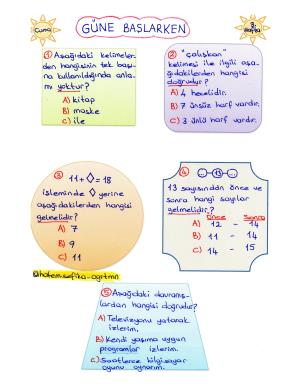 Cuma
GÜNE BAŞLARKEN
3.
Sayfa
① Aşağıdaki kelimeler-
den hangisinin tek başı-
na kullanıldığında anla-
mı yoktur?
A) kitap
B) maske
C) ile
② "çalışkan"
kelimesi ile ilgili aşa-
ğıdakilerden hangisi
doğrudur?
A) 4 hecelidir.
B) 7 ünsüz harf vardır.
C) 3 ünlü harf vardır.
③ 11+◊=18
işleminde ◊ yerine
aşağıdakilerden hangisi
gelmelidir?
A) 7
B) 9
C) 11
④ ...-13-...
13 sayısından önce ve
sonra hangi sayılar
gelmelidir?
Önce Sonra
A) 12 - 14
B) 11 - 14
C) 14 - 15
@hatem.sefika-ogrtmn
⑤ Aşağıdaki davranış-
lardan hangisi doğrudur?
A) Televizyonu yatarak
izlerim.
B) Kendi yaşıma uygun
programlar izlerim.
C) Saatlerce bilgisayar
oyunu oynarım.